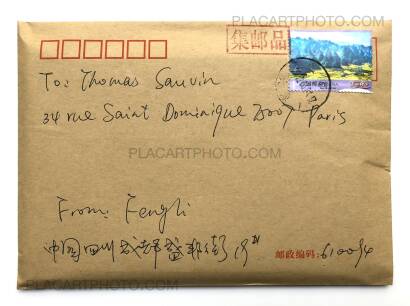 PLACARTPHOTO.COM
集邮品
To: Thomas Sauvin
34 rue Saint Dominique 75007 Paris
PLACARTPHOTO.COM
From: Fengli
中国四川成都
邮政编码: 610094
PLACARTPHOTO.COM